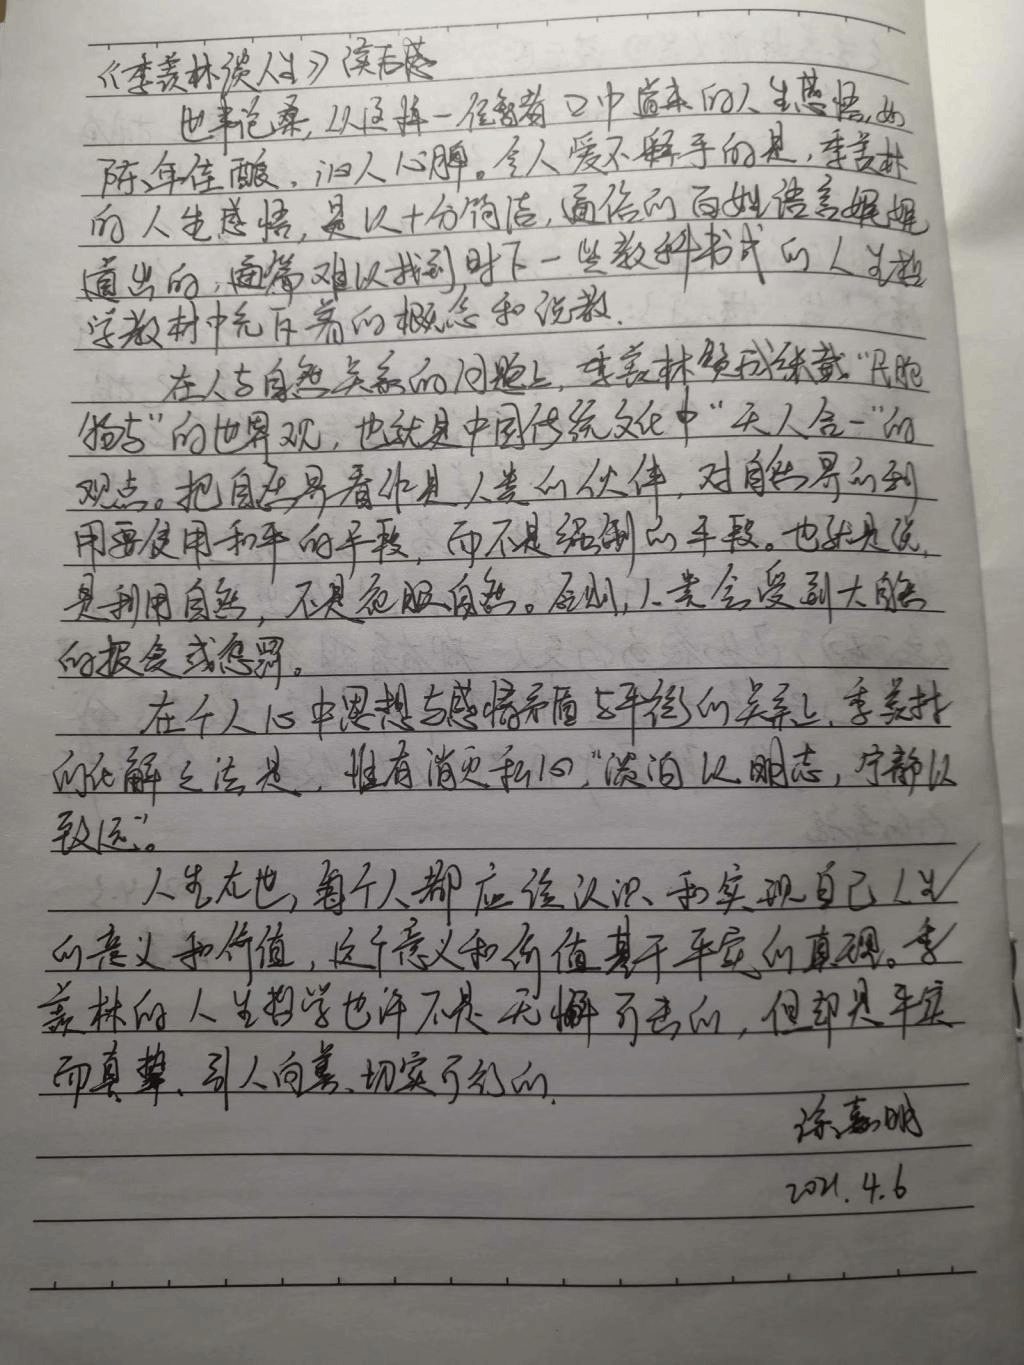 《季羡林谈人生》读后感
世事沧桑,从这样一位智者口中道来的人生感悟,如
陈年佳酿,沁人心脾。令人爱不释手的是,季羡林
的人生感悟,是以十分简洁,通俗的百姓语言娓娓
道出的,通篇难以找到时下一些教科书式的人生哲
学教材中充斥着的概念和说教.
在人与自然关系的问题上,季羡林赞成张载“民胞
物与”的世界观,也就是中国传统文化中“天人合一”的
观点。把自然界看作是人类的伙伴,对自然界的利
用要使用和平的手段,而不是强制的手段。也就是说,
是利用自然,不是征服自然。否则,人类会受到大自然
的报复或惩罚。
在个人心中思想与感情矛盾与平衡的关系上,季羡林
的化解之法是,惟有消灭私心,“淡泊以明志,宁静以
致远”。
人生在世,每个人都应该认识和实现自己人生
的意义和价值,这个意义和价值基于平实的真理。季
羡林的人生哲学也许不是无懈可击的,但却是平实
而真挚、引人向善、切实可行的.
徐嘉明
2021.4.6